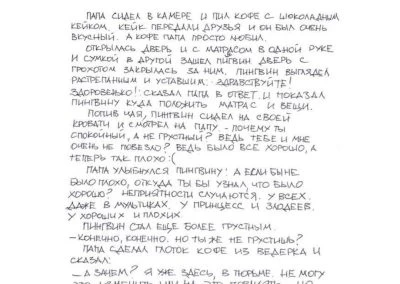 ПАПА СИДЕЛ В КАМЕРЕ И ПИЛ КОФЕ С ШОКОЛАДНЫМ
КЕЙКОМ. КЕЙК ПЕРЕДАЛИ ДРУЗЬЯ И ОН БЫЛ ОЧЕНЬ
ВКУСНЫЙ. А КОФЕ ПАПА ПРОСТО ЛЮБИЛ.
ОТКРЫЛАСЬ ДВЕРЬ И С МАТРАСОМ В ОДНОЙ РУКЕ
И СУМКОЙ В ДРУГОЙ ЗАШЕЛ ПИГВИН. ДВЕРЬ С
ГРОХОТОМ ЗАКРЫЛАСЬ ЗА НИМ. ПИНГВИН ВЫГЛЯДЕЛ
РАСТРЕПАННЫМ И УСТАВШИМ. - ЗДРАВСТВУЙТЕ!
ЗДОРОВЕНЬКО! - СКАЗАЛ ПАПА В ОТВЕТ. И ПОКАЗАЛ
ПИНГВИНУ КУДА ПОЛОЖИТЬ МАТРАС И ВЕЩИ.
ПОПИВ ЧАЯ, ПИНГВИН СИДЕЛ НА СВОЕЙ
КРОВАТИ И СМОТРЕЛ НА ПАПУ. - ПОЧЕМУ ТЫ
СПОКОЙНЫЙ, А НЕ ГРУСТНЫЙ? ВЕДЬ ТЕБЕ И МНЕ
ОЧЕНЬ НЕ ПОВЕЗЛО? ВЕДЬ БЫЛО ВСЕ ХОРОШО, А
ТЕПЕРЬ ТАК ПЛОХО :(
ПАПА УЛЫБНУЛСЯ ПИНГВИНУ: - А ЕСЛИ БЫ НЕ
БЫЛО ПЛОХО, ОТКУДА ТЫ БЫ УЗНАЛ, ЧТО БЫЛО
ХОРОШО? НЕПРИЯТНОСТИ СЛУЧАЮТСЯ У ВСЕХ.
ДАЖЕ В МУЛЬТИКАХ. У ПРИНЦЕСС И ЗЛОДЕЕВ.
У ХОРОШИХ И ПЛОХИХ.
ПИНГВИН СТАЛ ЕЩЕ БОЛЕЕ ГРУСТНЫМ.
- КОНЕЧНО, КОНЕЧНО. НО ТЫ ЖЕ НЕ ГРУСТИШЬ?
ПАПА СДЕЛАЛ ГЛОТОК КОФЕ ИЗ ВЕДЕРКА И
СКАЗАЛ:
- А ЗАЧЕМ? Я УЖЕ ЗДЕСЬ, В ТЮРЬМЕ. НЕ МОГУ